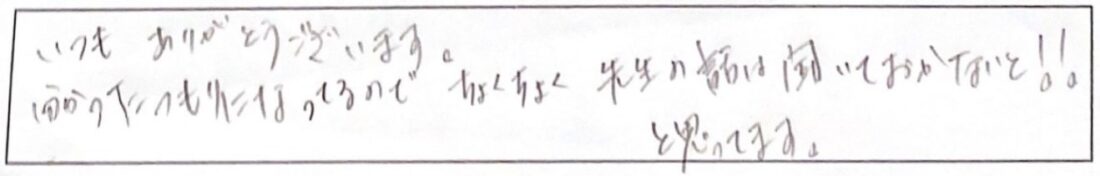 いつも ありがとうございます。
分かったつもりになってるので ちょくちょく 先生の話は聞いておかないと!!。
と思ってます。